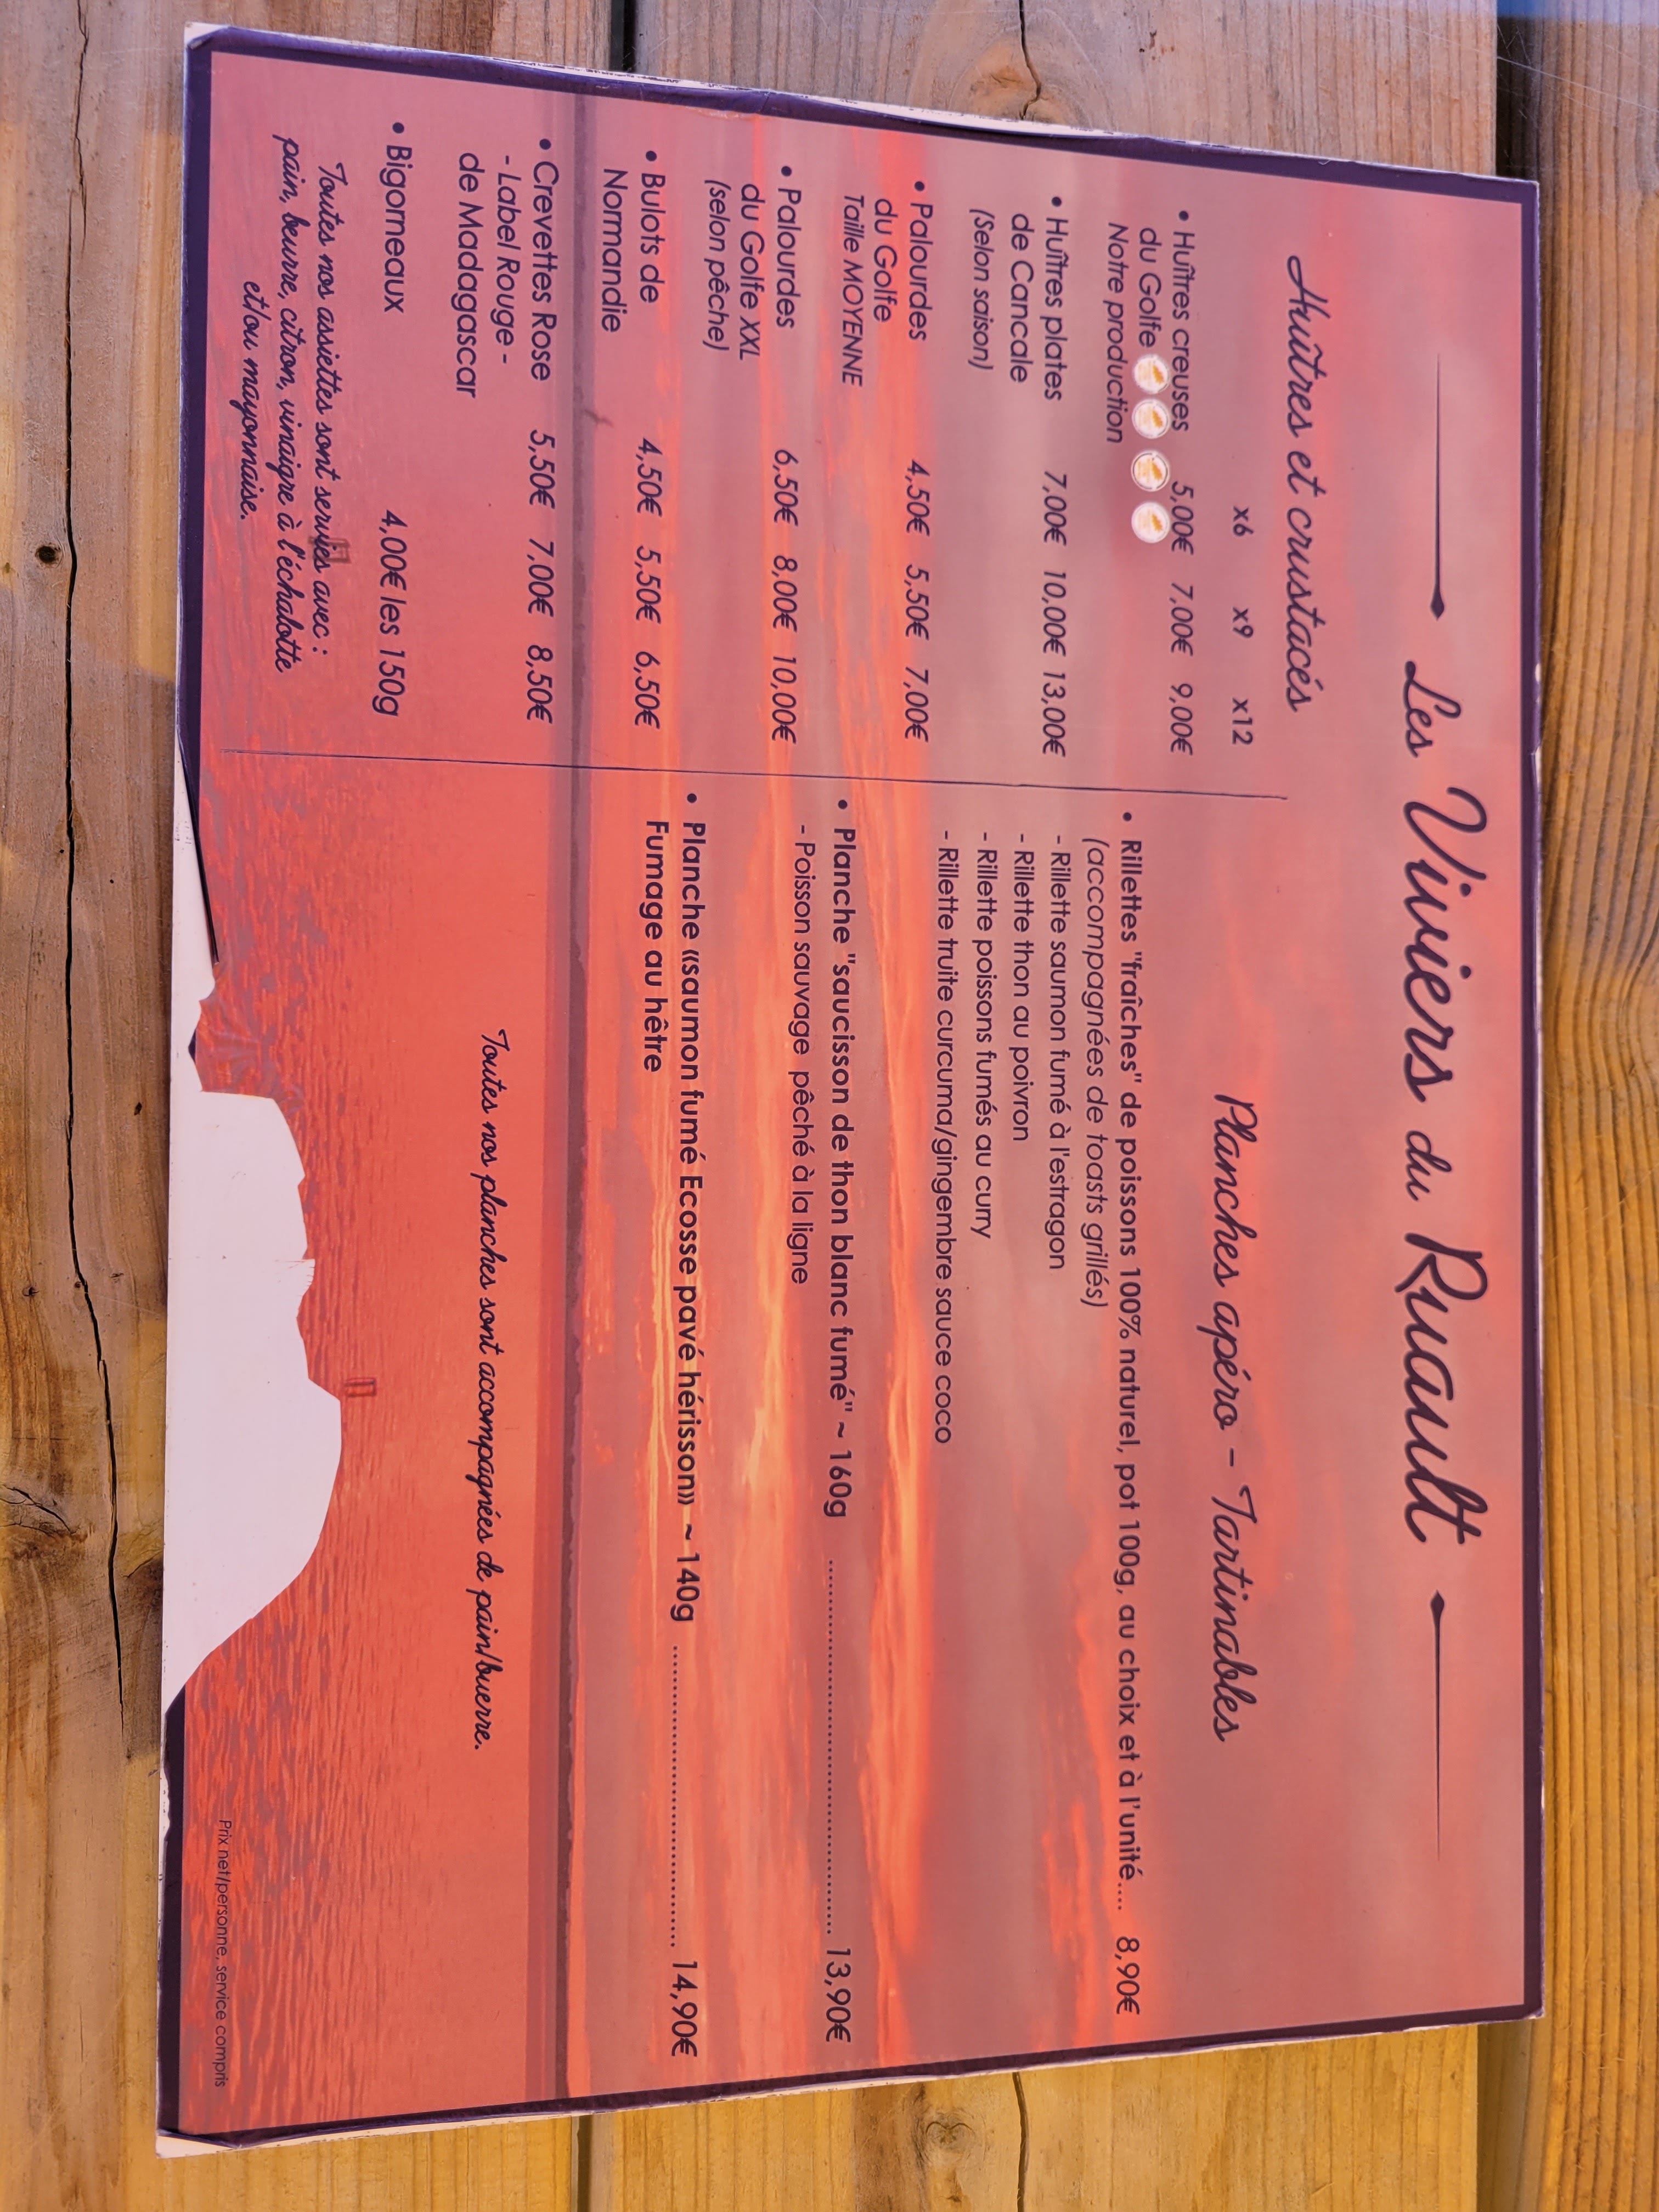 Les Viviers du Ruault
Huîtres et crustacés
x6 x9 x12
• Huîtres creuses 5,00€ 7,00€ 9,00€
du Golfe
Notre production
• Huîtres plates 7,00€ 10,00€ 13,00€
de Cancale
(Selon saison)
• Palourdes 4,50€ 5,50€ 7,00€
du Golfe
Taille MOYENNE
• Palourdes 6,50€ 8,00€ 10,00€
du Golfe XXL
(selon pêche)
• Bulots de 4,50€ 5,50€ 6,50€
Normandie
• Crevettes Rose 5,50€ 7,00€ 8,50€
- Label Rouge -
de Madagascar
• Bigorneaux 4,00€ les 150g
Toutes nos assiettes sont servies avec :
pain, beurre, citron, vinaigre à l'échalotte
et/ou mayonnaise.
Planches apéro - Tartinables
• Rillettes "fraîches" de poissons 100% naturel, pot 100g, au choix et à l'unité.... 8,90€
(accompagnées de toasts grillés)
- Rillette saumon fumé à l'estragon
- Rillette thon au poivron
- Rillette poissons fumés au curry
- Rillette truite curcuma/gingembre sauce coco
• Planche "saucisson de thon blanc fumé" ~ 160g ........................................ 13,90€
- Poisson sauvage pêché à la ligne
• Planche «saumon fumé Ecosse pavé hérisson» ~ 140g ................................ 14,90€
Fumage au hêtre
Toutes nos planches sont accompagnées de pain/buerre.
Prix net/personne, service compris